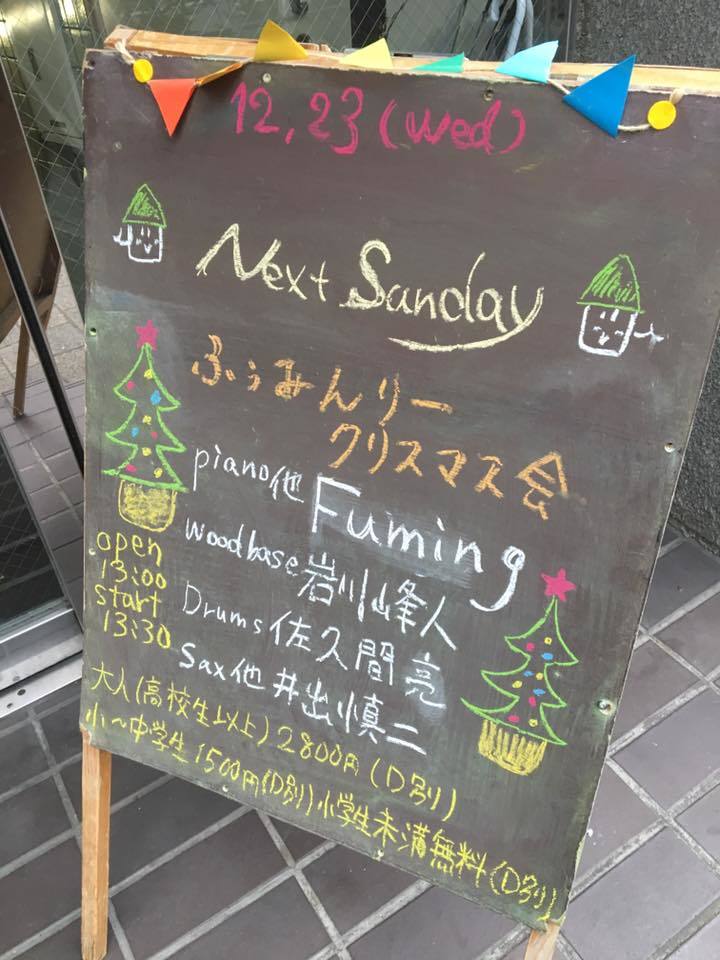 12,23(wed)
Next Sanday
ふぅみんりー
クリスマス会
piano他 Fuming
woodbase 岩川峰人
Drums 佐久間亮
Sax他 井出慎二
open
13:00
start
13:30
大人(高校生以上)2800円(D別)
小〜中学生1500円(D別)小学生未満無料(D別)